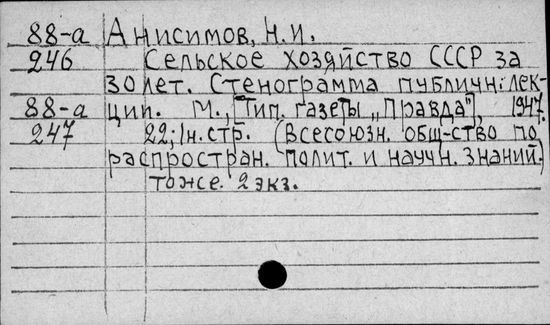 88-а Анисимов, Н.И.
246 Сельское хозяйство СССР за
30 лет. Стенограмма публичн: лек-
88-а ции. М., [Тип. газеты „Правда"], 1947.
247 22; 1н.стр. (Всесоюзн. общ-ство по
распростран. полит. и научн. знаний.)
тоже. 2 экз.